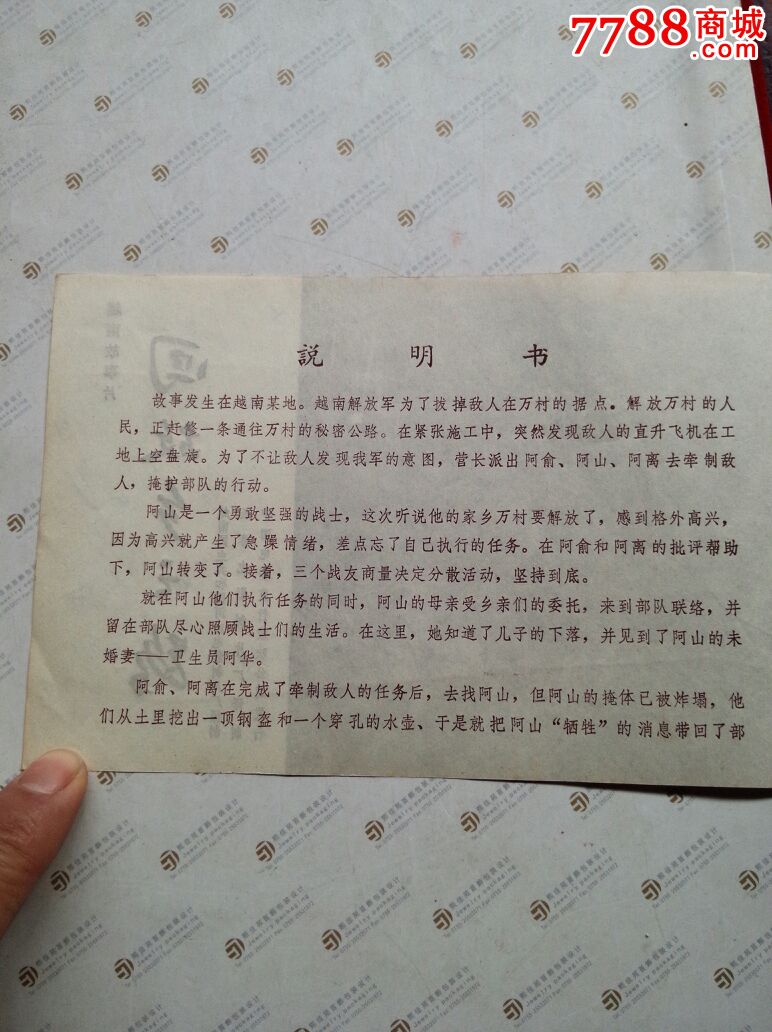 7788商城
.com
説明书
故事发生在越南某地。越南解放军为了拔掉敌人在万村的据点。解放万村的人
民，正赶修一条通往万村的秘密公路。在紧张施工中，突然发现敌人的直升飞机在工
地上空盘旋。为了不让敌人发现我军的意图，营长派出阿俞、阿山、阿离去牵制敌
人，掩护部队的行动。
阿山是一个勇敢坚强的战士，这次听说他的家乡万村要解放了，感到格外高兴，
因为高兴就产生了急躁情绪，差点忘了自己执行的任务。在阿俞和阿离的批评帮助
下，阿山转变了。接着，三个战友商量决定分散活动，坚持到底。
就在阿山他们执行任务的同时，阿山的母亲受乡亲们的委托，来到部队联络，并
留在部队尽心照顾战士们的生活。在这里，她知道了儿子的下落，并见到了阿山的未
婚妻——卫生员阿华。
阿俞、阿离在完成了牵制敌人的任务后，去找阿山，但阿山的掩体已被炸塌，他
们从土里挖出一顶钢盔和一个穿孔的水壶、于是就把阿山“牺牲”的消息带回了部